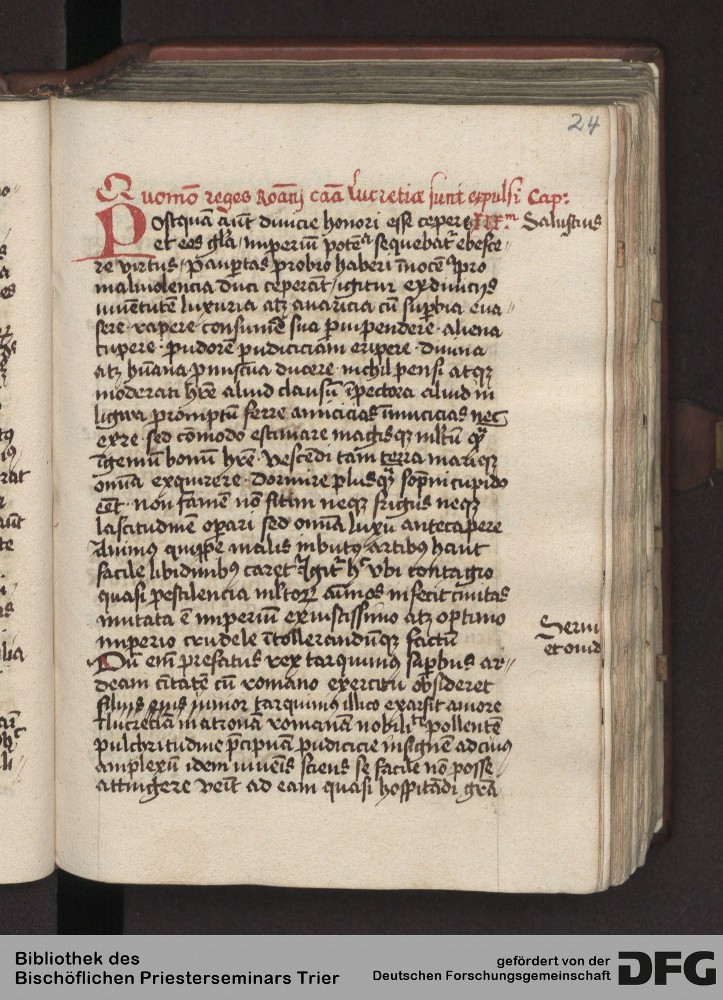 24
Quomo͞ reges Roa͞nj ca͞a lucretiae sunt expulsi Cap:
Postqua͞ diuicie honori esse cepere XIXm Salustius
et eos gl͞a imperiu͞ pote͞ sequebat͞ ebesce
re virtus paup͞tas probro haberi i͞noce͞ pro
maliuolencia duci ceperat igitur ex diuicijs
iuuentute͞ luxuria atqꝫ auaricia cu͞ sup͞bia eua
sere rapere consume͞ sua p͞uipendere aliena
cupere pudore͞ pudicicia͞m eripere diuina
atqꝫ hu͞ana p͞miscua ducere nichil pensi atqꝫ
moderati h͞re aliud clausu͞ i͞ pectora aliud in
ligwa promptu͞ ferre amicicias i͞nimicicias nec
ex re sed co͞modo estimare magisqꝫ vultu͞ q͞
i͞geniu͞ bonu͞ h͞re vesce͞di tam terra mariqꝫ
om͞ia exquirere dormire p͞usqꝫ sop͞ni cupido
e͞et non fame͞ no͞ sitim neqꝫ frigus neqꝫ
lascitudine͞ op͞ari sed om͞ia luxu͞ antecapere
Animus quippe malis inbutꝰ artibꝰ haut
facile libidinibꝰ caret Igit͞ h͞ vbi contagio
quasi pestilencia animos infecit ciuitas
inmutata e͞ imperiu͞ ex iustissimo atqꝫ optimo
imperio crudele i͞tollerandu͞qꝫ factu͞
Du͞ em͞ prefatus rex tarquinius sup͞bus ar
deam ci͞tate͞ cu͞ romano exercitu obsideret
filius eius iunior tarquinius illico exarsit amore
lucretia͞ matrona͞ romana͞ nobilite͞ pollente͞
pulchritudine p͞cipua͞ pudicicie insigne͞ ad cuiꝰ
amplexu͞ idem iuue͞is sciens se facile no͞ posse
attingere ve͞it ad eam quasi hospita͞di gr͞a
Serui
et ouid
Bibliothek des
Bischöflichen Priesterseminars Trier
gefördert von der
Deutschen Forschungsgemeinschaft
DFG